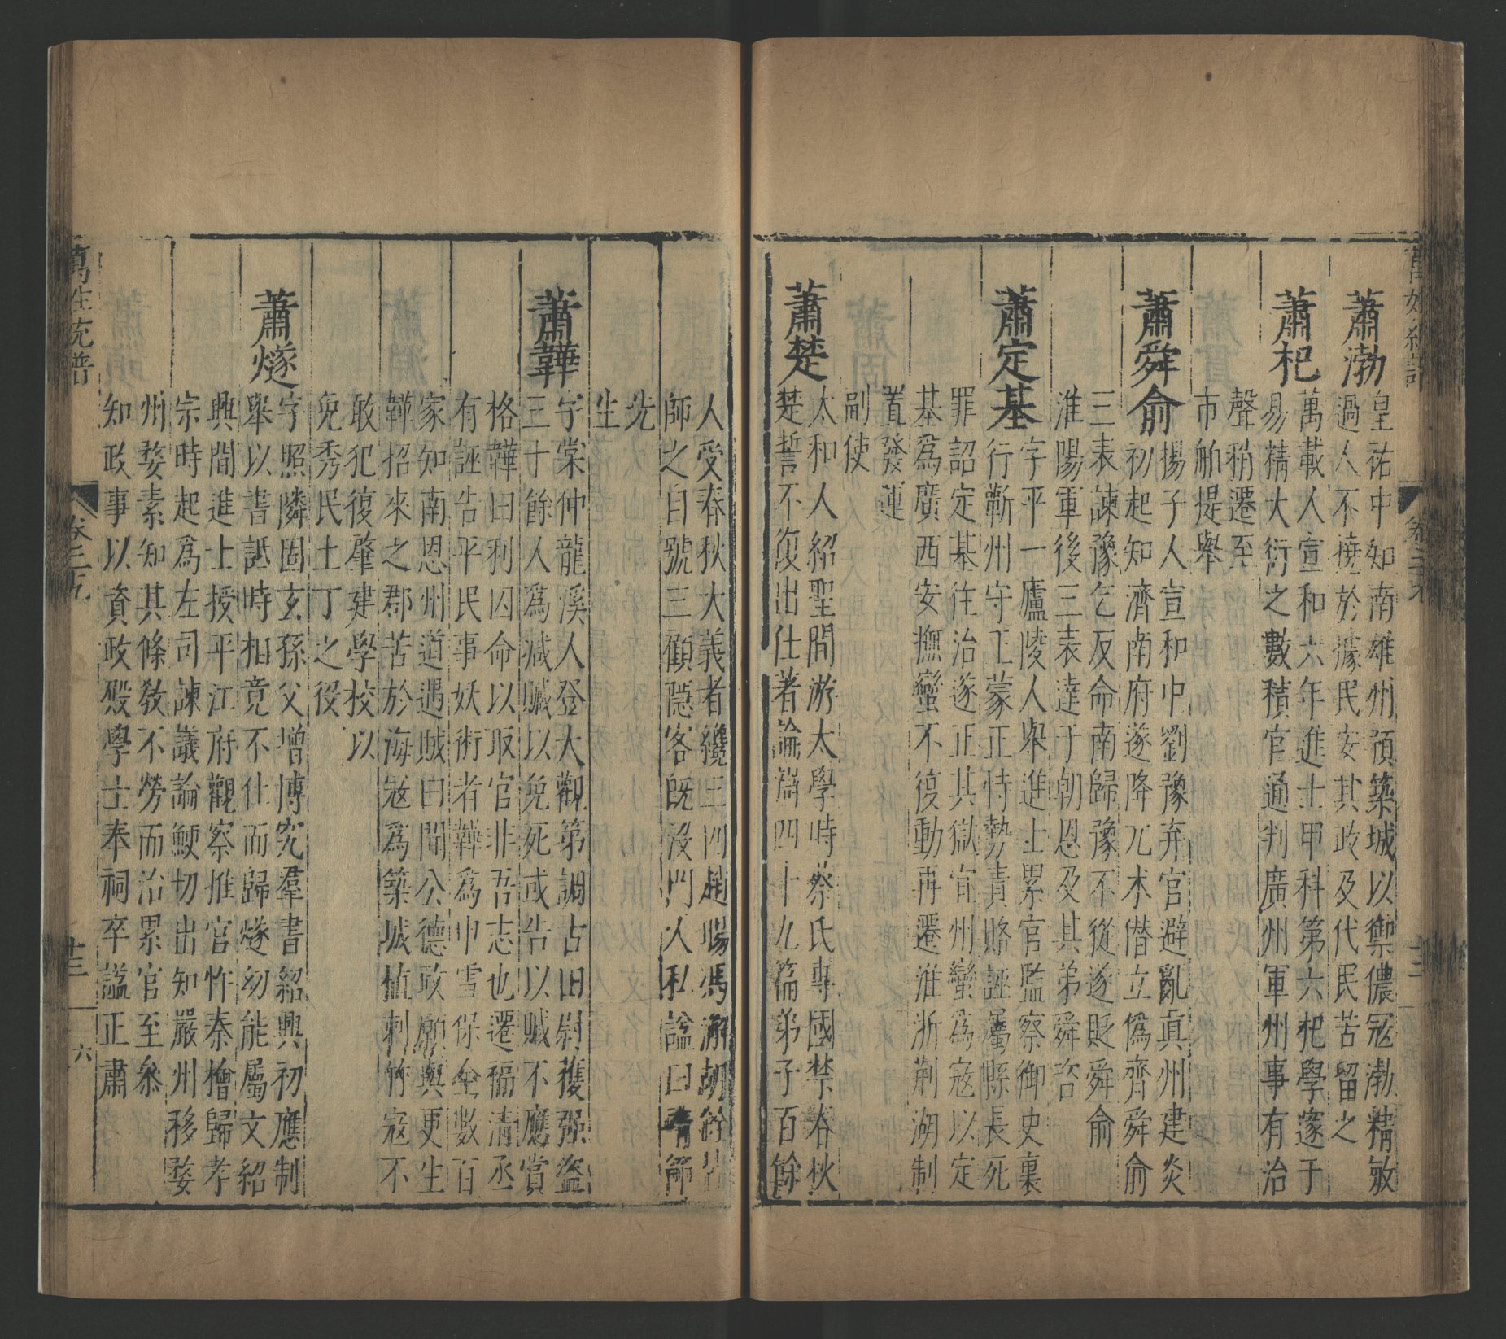 蕭渤
皇祐中知南雄州預築城以禦儂寇渤精敏
過人不撓於據民安其政及代民苦留之
蕭杞
萬載人宣和六年進士甲科第六杞學遂于
易精大衍之數積官通判廣州軍州事有治
聲稍遷至
市舶提舉
蕭舜俞
揚子人宣和中劉豫弃官避亂真州建炎
初起知濟南府遂降兀术僭立偽齊舜俞
三表諫豫乞反命南歸豫不從遂貶舜俞
淮陽軍後三表達于朝恩及其弟舜咨
蕭定基
字平一廬陵人舉進士累官監察御史裏
行蘄州守王蒙正恃勢責賂誣屬縣長死
罪詔定基往治遂正其獄宜州蠻為寇以定
基為廣西安撫蠻不復動再遷淮浙荊湖制
置發運
副使
蕭楚
太和人紹聖間游太學時蔡氏專國禁春秋
楚誓不復出仕著論篇四十九篇弟子百餘
人受春秋大義者纔三四趙暘馮澥胡銓皆
師之自號三顧隱客既沒門人私諡曰清節
先
生
蕭韡
字棠仲龍溪人登大觀第調古田尉獲强盜
三十餘人為減贓以免死或告以贓不應賞
格韡曰利囚命以取官非吾志也遷福清丞
有誣告平民事妖術者韡為申雪保全數百
家知南恩州道遇賊曰聞公德政願與更生
韡招來之郡苦於海寇為築城植刺竹寇不
敢犯復肇建學校以
免秀民土丁之役
蕭燧
字照隣固玄孫父增博究羣書紹興初應制
舉以書詆時相竟不仕而歸燧幼能屬文紹
興間進士授平江府觀察推官忤秦檜歸孝
宗時起為左司諫議論鯁切出知嚴州移婺
州婺素知其條教不勞而治累官至叅
知政事以資政殿學士奉祠卒諡正肅
萬姓統譜
卷二十九
十三
六